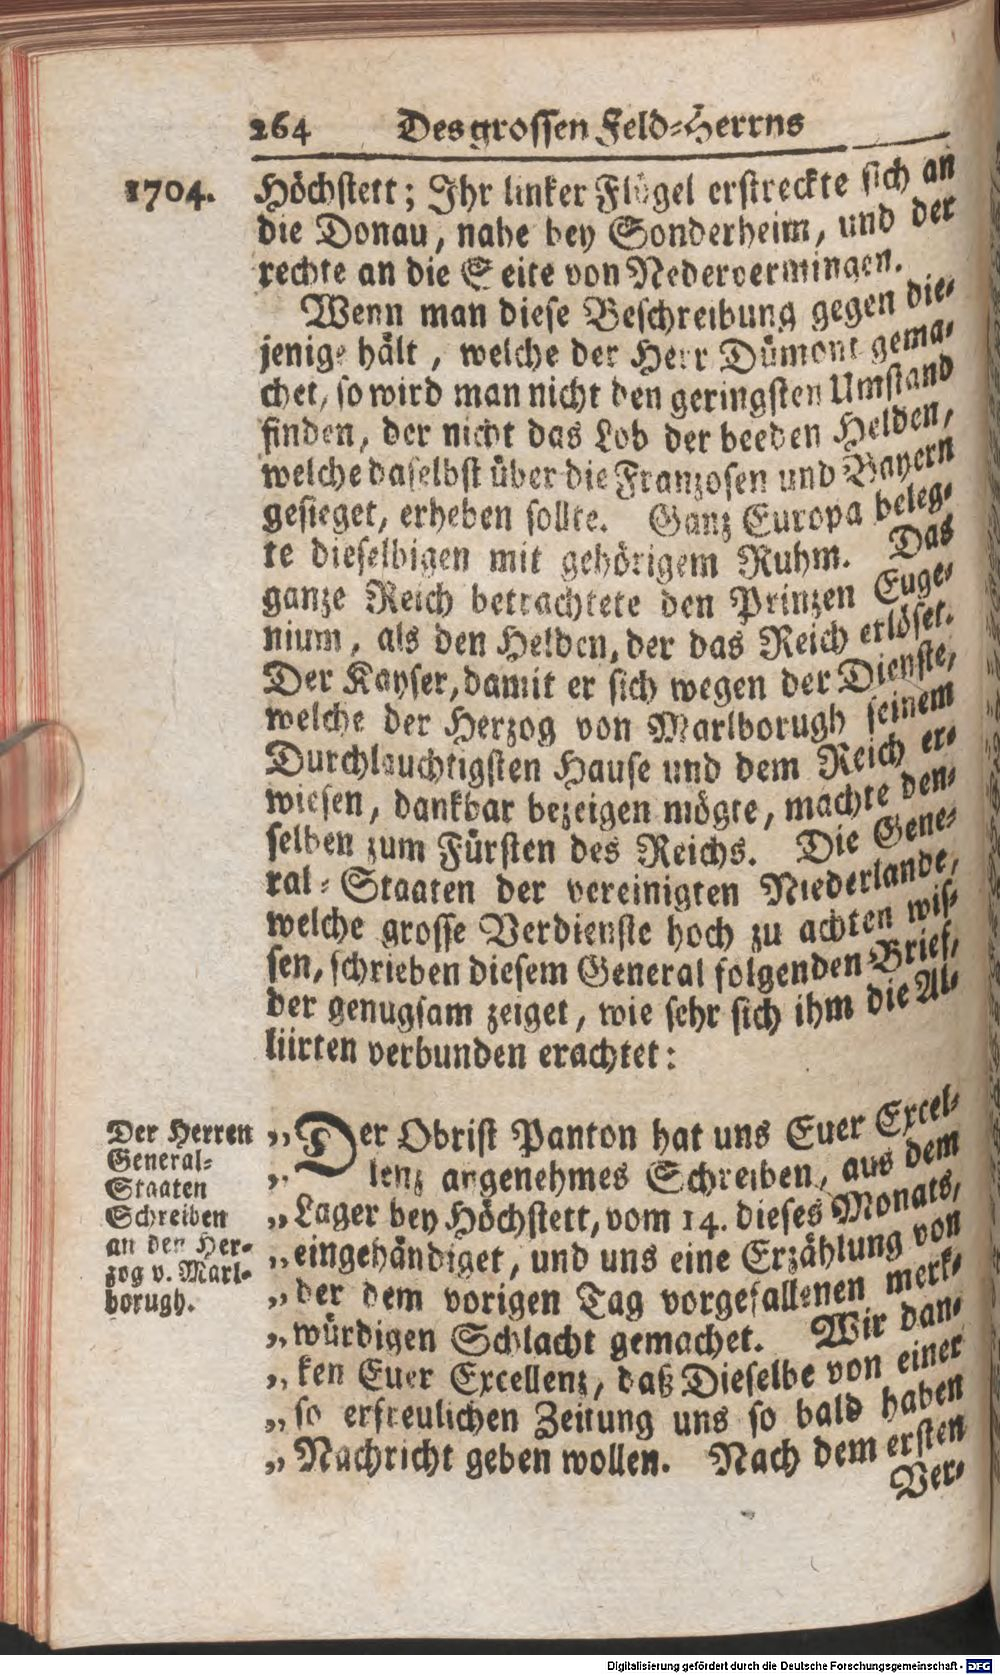 264 Des grossen Feld-Herrns
1704.
Höchstett; Ihr linker Flügel erstreckte sich an
die Donau, nahe bey Sonderheim, und der
rechte an die Seite von Nedervermingen.
Wenn man diese Beschreibung gegen die-
jenige hält, welche der Herr Dümont gema-
chet, so wird man nicht den geringsten Umstand
finden, der nicht das Lob der beeden Helden,
welche daselbst über die Franzosen und Bayern
gesieget, erheben sollte. Ganz Europa beleg-
te dieselbigen mit gehörigem Ruhm. Das
ganze Reich betrachtete den Prinzen Euge-
nium, als den Helden, der das Reich erlöset.
Der Kayser, damit er sich wegen der Dienste,
welche der Herzog von Marlborugh seinem
Durchlauchtigsten Hause und dem Reich er-
wiesen, dankbar bezeigen mögte, machte den-
selben zum Fürsten des Reichs. Die Gene-
ral-Staaten der vereinigten Niederlande,
welche grosse Verdienste hoch zu achten wis-
sen, schrieben diesem General folgenden Brief,
der genugsam zeiget, wie sehr sich ihm die Al-
liirten verbunden erachtet:
Der Herren
General-
Staaten
Schreiben
an den Her-
zog v. Marl-
borugh.
„Der Obrist Panton hat uns Euer Excel-
„lenz angenehmes Schreiben, aus dem
„Lager bey Höchstett, vom 14. dieses Monats,
„eingehändiget, und uns eine Erzählung von
„der dem vorigen Tag vorgefallenen merk-
„würdigen Schlacht gemachet. Wir dan-
„ken Euer Excellenz, daß Dieselbe von einer
„so erfreulichen Zeitung uns so bald haben
„Nachricht geben wollen. Nach dem ersten
Ver-
Digitalisierung gefördert durch die Deutsche Forschungsgemeinschaft - DFG